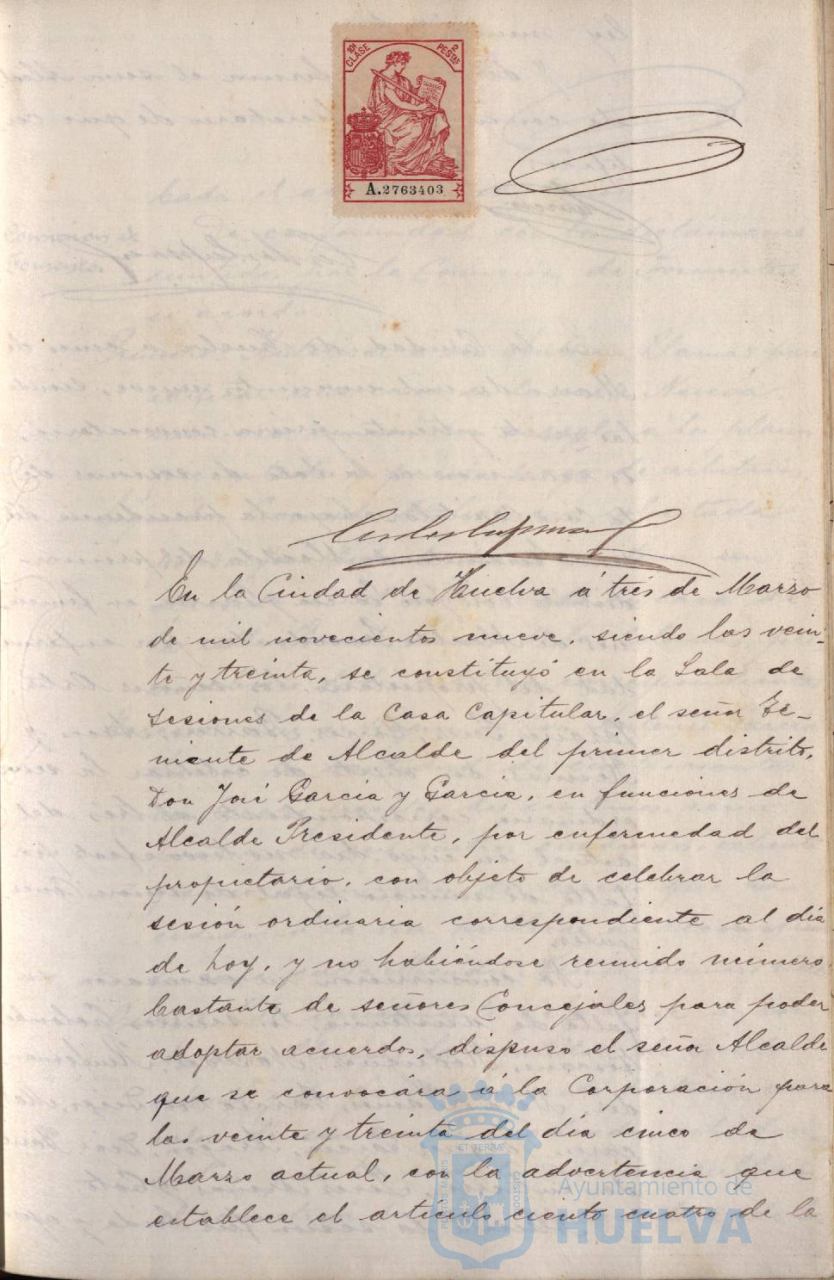 10ª CLASE
2 PESTAS
A.2763403
En la Ciudad de Huelva á trés de Marzo
de mil novecientos nueve, siendo las vein-
te y treinta, se constituyó en la Sala de
sesiones de la Casa Capitular, el señor Te-
niente de Alcalde del primer distrito,
Don José García y García, en funciones de
Alcalde Presidente, por enfermedad del
propietario, con objeto de celebrar la
sesión ordinaria correspondiente al día
de hoy, y no habiéndose reunido número
bastante de señores Concejales para poder
adoptar acuerdos, dispuso el señor Alcalde
que se convocára á la Corporación para
las veinte y treinta del día cinco de
Marzo actual, con la advertencia que
establece el artículo ciento cuatro de la
Ayuntamiento de
HUELVA